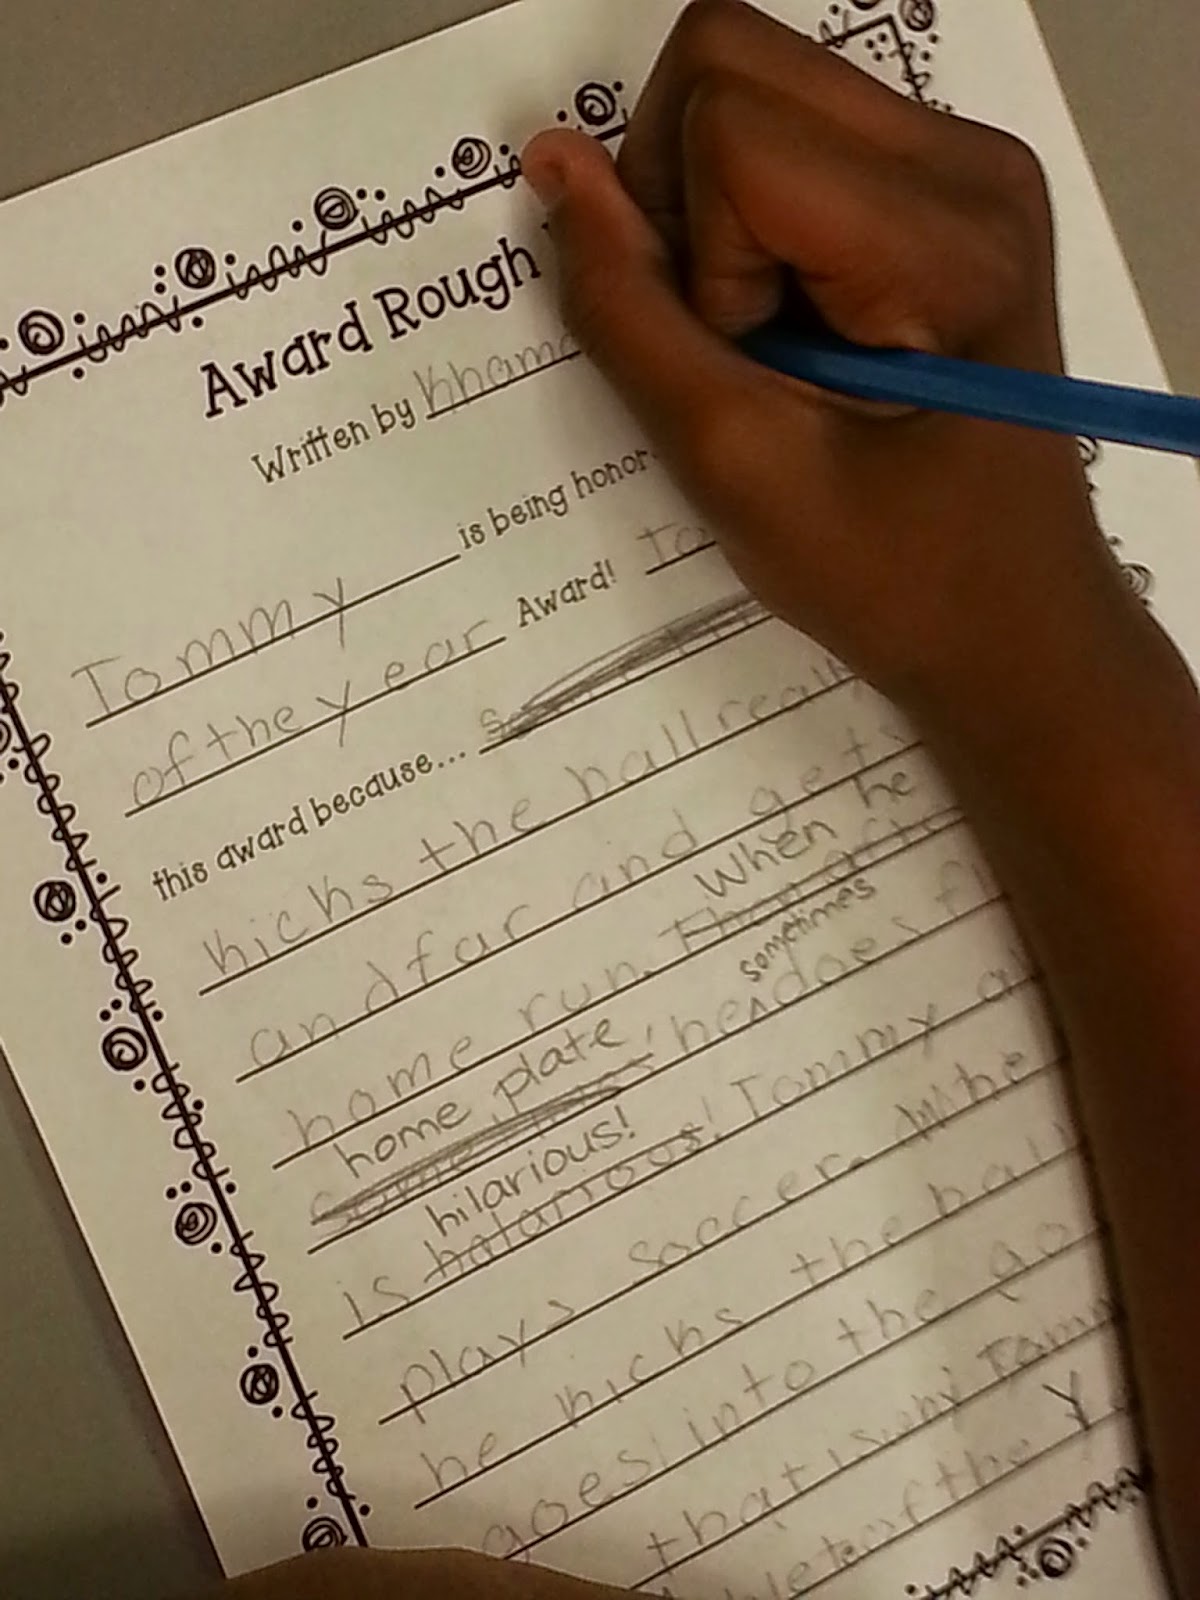 Award Rough
Written by Khama
Tommy is being honor
of the year Award! To
this award because...
kicks the ball really
and far and gets
When he
home run. Then after
sometimes
home plate, he ^ does
hilarious!
is halarious! Tommy
plays soccer. Whe
he kicks the ball
goes into the go
that is why Tomm
of the Y